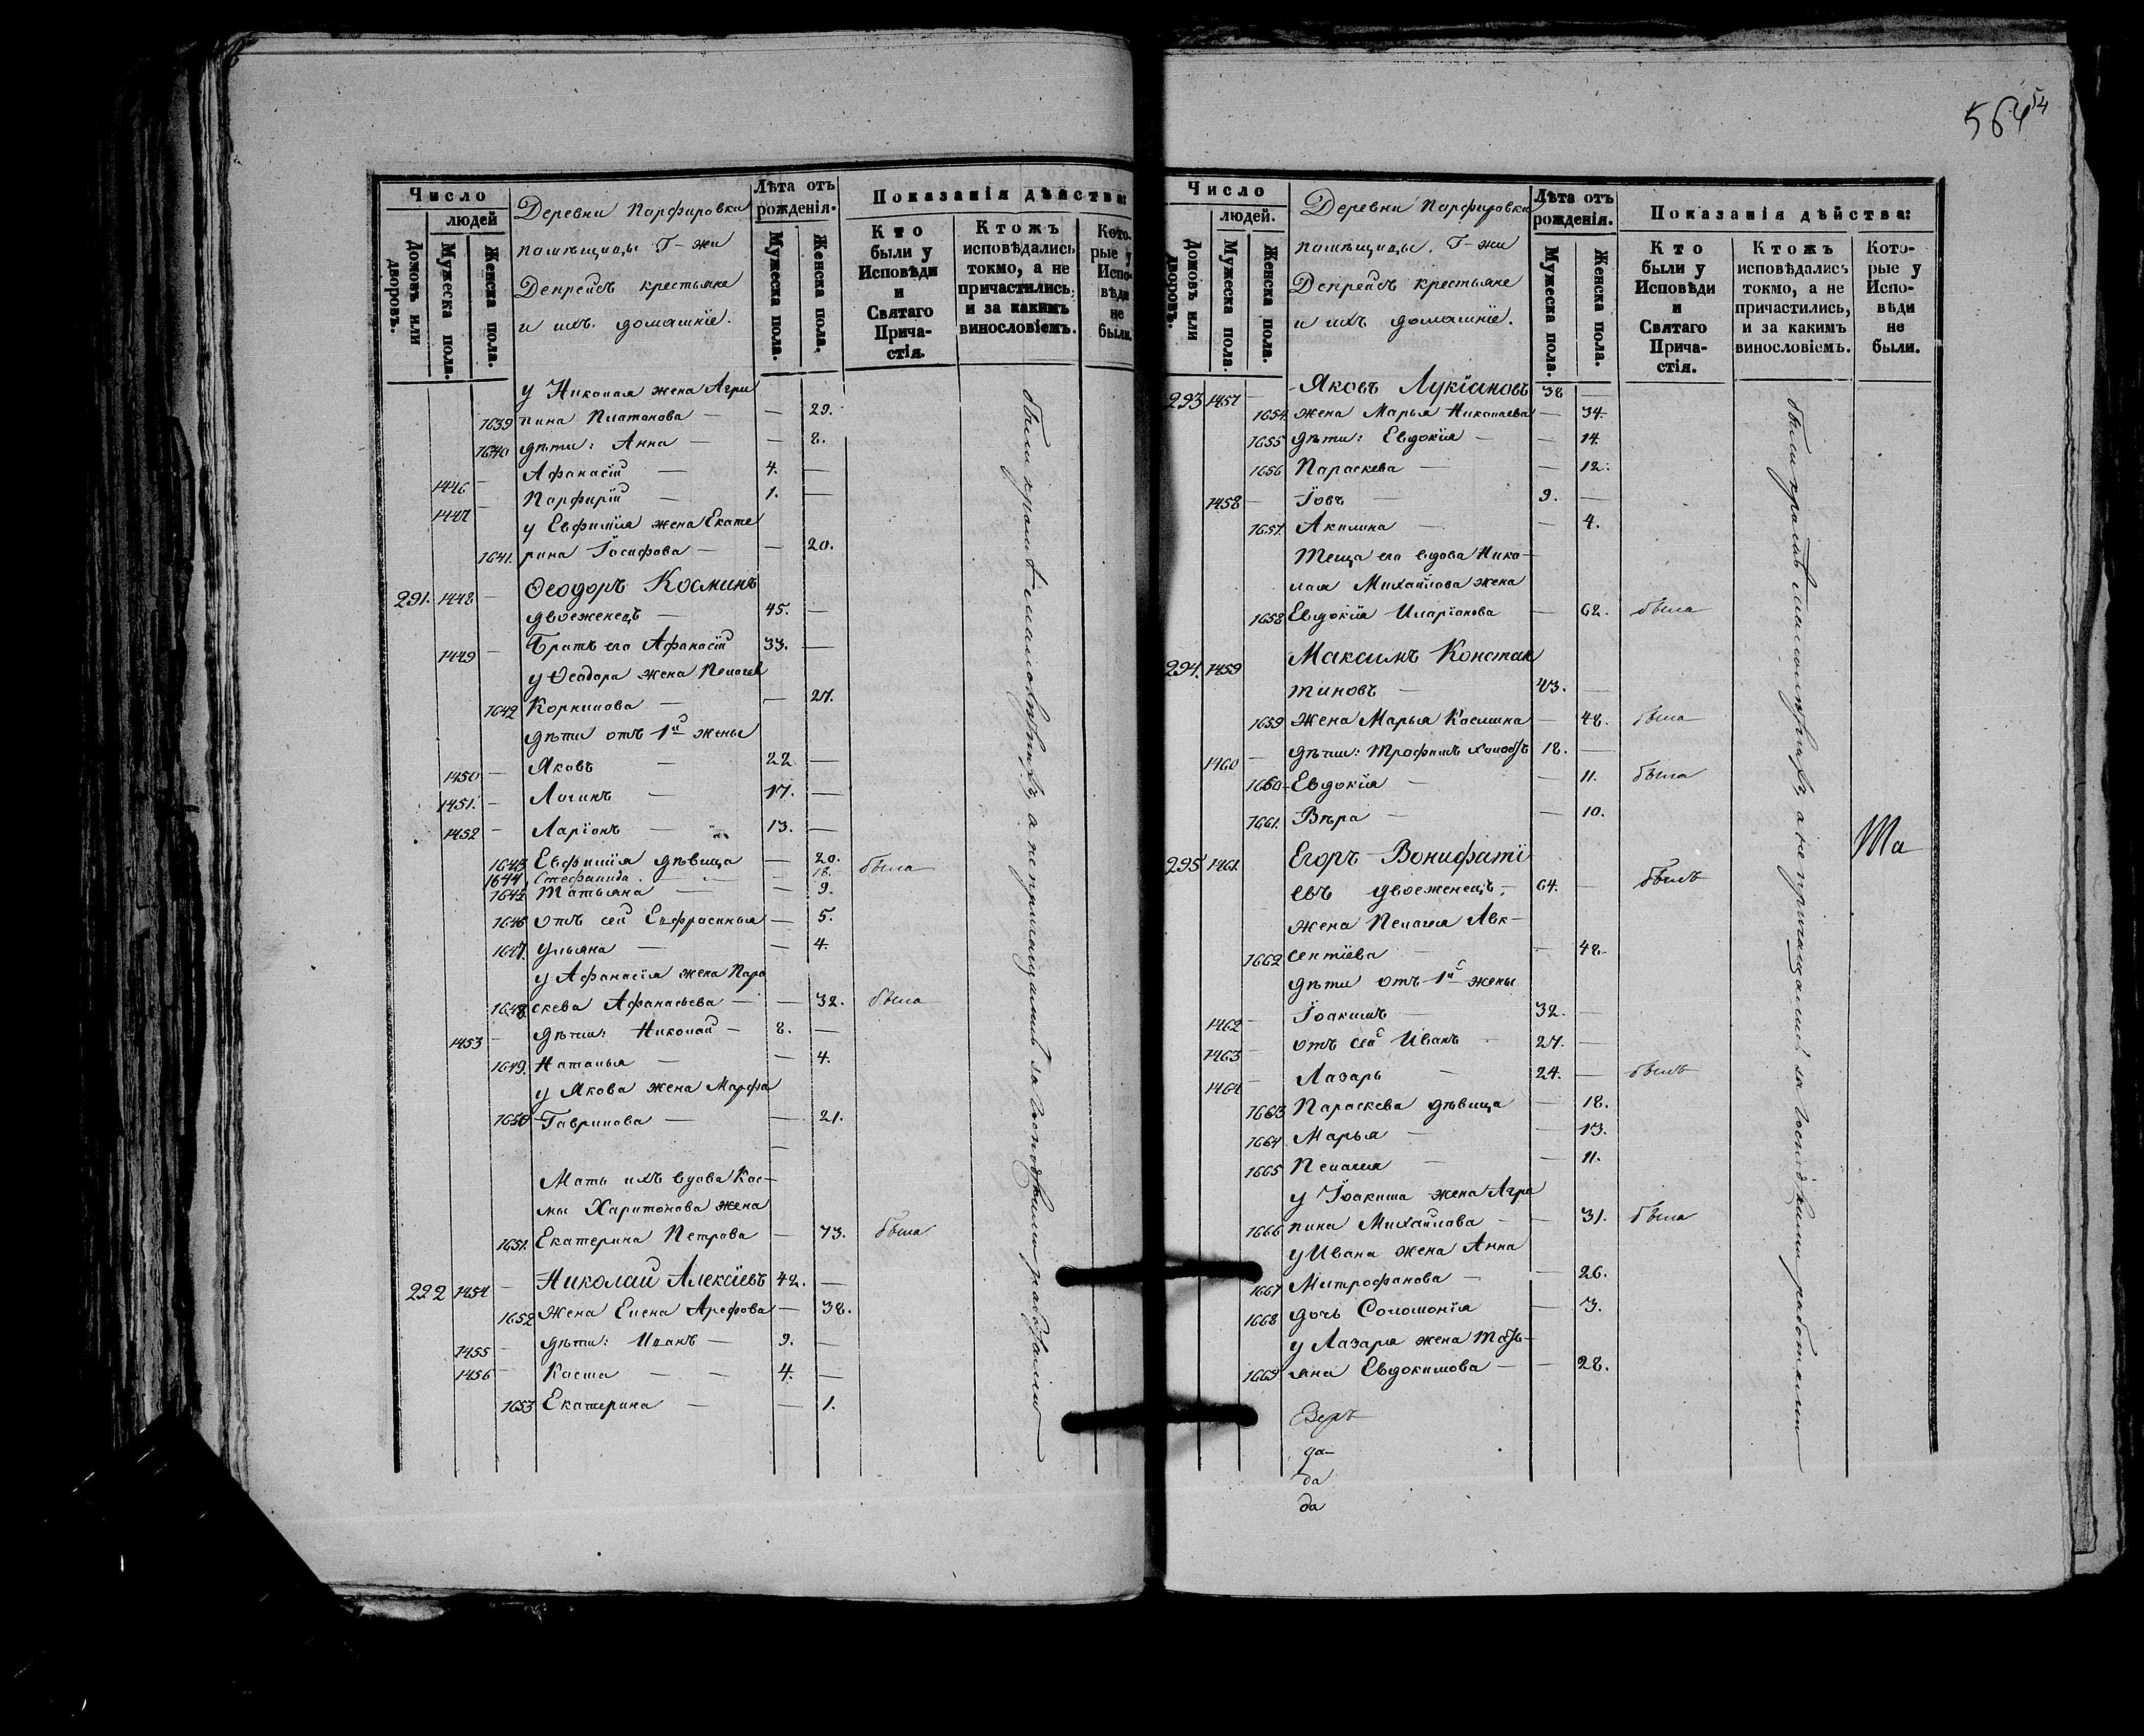 564 54
Число
людей
Домовъ или дворовъ.
Мужеска пола.
Женска пола.
Деревни Парфировки
помѣщицы Г-жи
Депрейсъ крестьяне
и ихъ домашніе.
Лѣта отъ рожденія.
Мужеска пола.
Женска пола.
Показанія дѣйства:
Кто были у Исповѣди и Святаго Причастія.
Ктожъ исповѣдались токмо, а не причастились, и за какимъ винословіемъ.
Которые у Исповѣди не были.
у Николая жена Агри
1639 пина Платонова — — 29.
1640 дѣти: Анна — — 8.
1446 — Афанасій — 4. —
1447 — Парфирій — 1. —
у Евфимія жена Екате
1641. рина Іосифова — — 20.
291. 1448 — Ѳеодоръ Косминъ
двоеженецъ — 45. —
1449 — Братъ его Афанасій 33. —
у Ѳеодора жена Пелагея
1642 Корнилова — — 27.
дѣти отъ 1й жены
1450 — Яковъ — 22 —
1451. — Логинъ — 17. —
1452 — Ларіонъ — 13. —
1643 Евфимія дѣвица — 20. была
1644 Стефанида — 18.
1645 Татьяна — — 9.
1646 отъ сей Евфросинья — 5.
1647. Ульяна — — 4.
у Афанасія жена Пара
1648. скева Афанасьева — — 32. была
1453 — дѣти: Николай — 8. —
1649. Наталья — — 4.
у Якова жена Марфа
1650 Гаврилова — — 21.
Мать ихъ вдова Кос-
мы Харитонова жена
1651. Екатерина Петрова — 73. была
292 1454 — Николай Алексіевъ 42. —
1652 Жена Елена Арефова — 38.
1455 — дѣти: Иванъ — 9. —
1456 — Косма — — 4. —
1653 Екатерина — — 1.
были кромѣ малолѣтнихъ, а не причащались за господскими работами
Число
людей.
Домовъ или дворовъ.
Мужеска пола.
Женска пола.
Деревни Парфировки
помѣщицы Г-жи
Депрейсъ крестьяне
и ихъ домашніе.
Лѣта отъ рожденія.
Мужеска пола.
Женска пола.
Показанія дѣйства:
Кто были у Исповѣди и Святаго Причастія.
Ктожъ исповѣдались токмо, а не причастились, и за какимъ винословіемъ.
Которые у Исповѣди не были.
293 1457 — Яковъ Лукіановъ 38 —
1654. жена Марья Николаева — 34.
1655 дѣти: Евдокія — — 14.
1656 Параскева — — 12.
1458 — Іовъ — 9. —
1657. Акилина — — 4.
Теща его вдова Нико-
лая Михайлова жена
1658 Евдокія Иларіонова — 62. была
294. 1459 Максимъ Констан
тиновъ — 43. —
1659 жена Марья Косьмина — 48. была
1460 — дѣти: Трофимъ холостъ 18. —
1660. Евдокія — — 11. была
1661. Вѣра — — 10.
295 1461. Егоръ Вонифатіевъ двоеженецъ — 64. — былъ
жена Пелагея Авк-
1662 сентіева — — 48.
дѣти отъ 1й жены
1462 — Іоакимъ — 32. —
1463 — отъ сей Иванъ — 27. —
1464 — Лазарь — 24. — былъ
1663 Параскева дѣвица — 18.
1664 Марья — — 13.
1665 Пелагея — — 11.
у Іоакима жена Агри
1666 пина Михайлова — — 31. была
у Ивана жена Анна
1667 Митрофанова — — 26.
1668 дочь Соломонія — 3.
у Лазаря жена Тать-
1669 яна Евдокимова — — 28.
были кромѣ малолѣтнихъ, а не причащались за господскими работами
Та
да
да
да